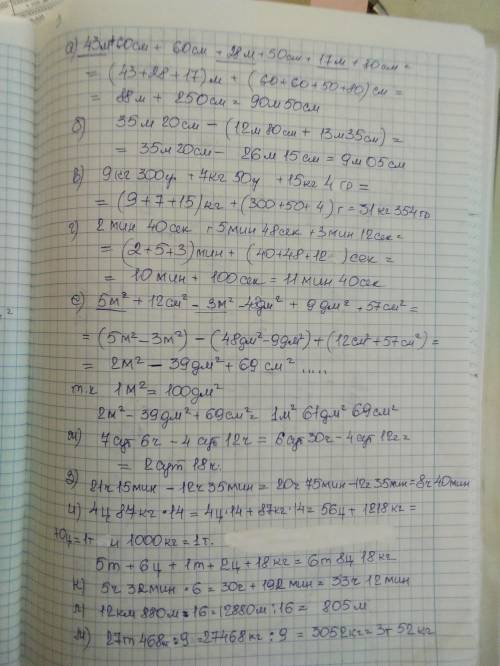 а) 43м+60см + 60см + 28м +50см + 17м + 80см =
= (43+28+17)м + (60+60+50+80)см =
= 88м + 250см = 90м 50см
б) 35м 20см – (12м 80см + 13м 35см) =
= 35м 20см – 26м 15см = 9м 05см
в) 9кг 300гр + 7кг 50г + 15кг 4гр =
= (9+7+15)кг + (300+50+4)г = 31кг 354гр
г) 2 мин 40сек + 5мин 48сек + 3мин 12сек =
= (2+5+3)мин + (40+48+12 )сек =
= 10мин + 100сек = 11мин 40сек
е) 5м² + 12см² – 3м² – 48дм² + 9дм² + 57см² =
= (5м² – 3м²) – (48дм² – 9дм²) + (12см² + 57см²) =
= 2м² – 39дм² + 69см² .....
т.к 1м² = 100дм²
2м² – 39дм² + 69см² = 1м² 61дм² 69см²
ж) 7сут 6ч – 4сут 12ч = 6сут 30ч – 4сут 12ч =
= 2сут 18ч.
з) 21ч 15мин – 12ч 35мин = 20ч 75мин – 12ч 35мин = 8ч 40мин
и) 4ц 87кг · 14 = 4ц · 14 + 87кг · 14 = 56ц + 1218кг =
10ц = 1т и 1000кг = 1т.
5т + 6ц + 1т + 2ц + 18кг = 6т 8ц 18кг
к) 5ч 32мин · 6 = 30ч + 192мин = 33ч 12мин
л) 12км 880м : 16 = 12880м : 16 = 805м
м) 27т 468кг : 9 = 27468кг : 9 = 3052кг = 3т 52кг